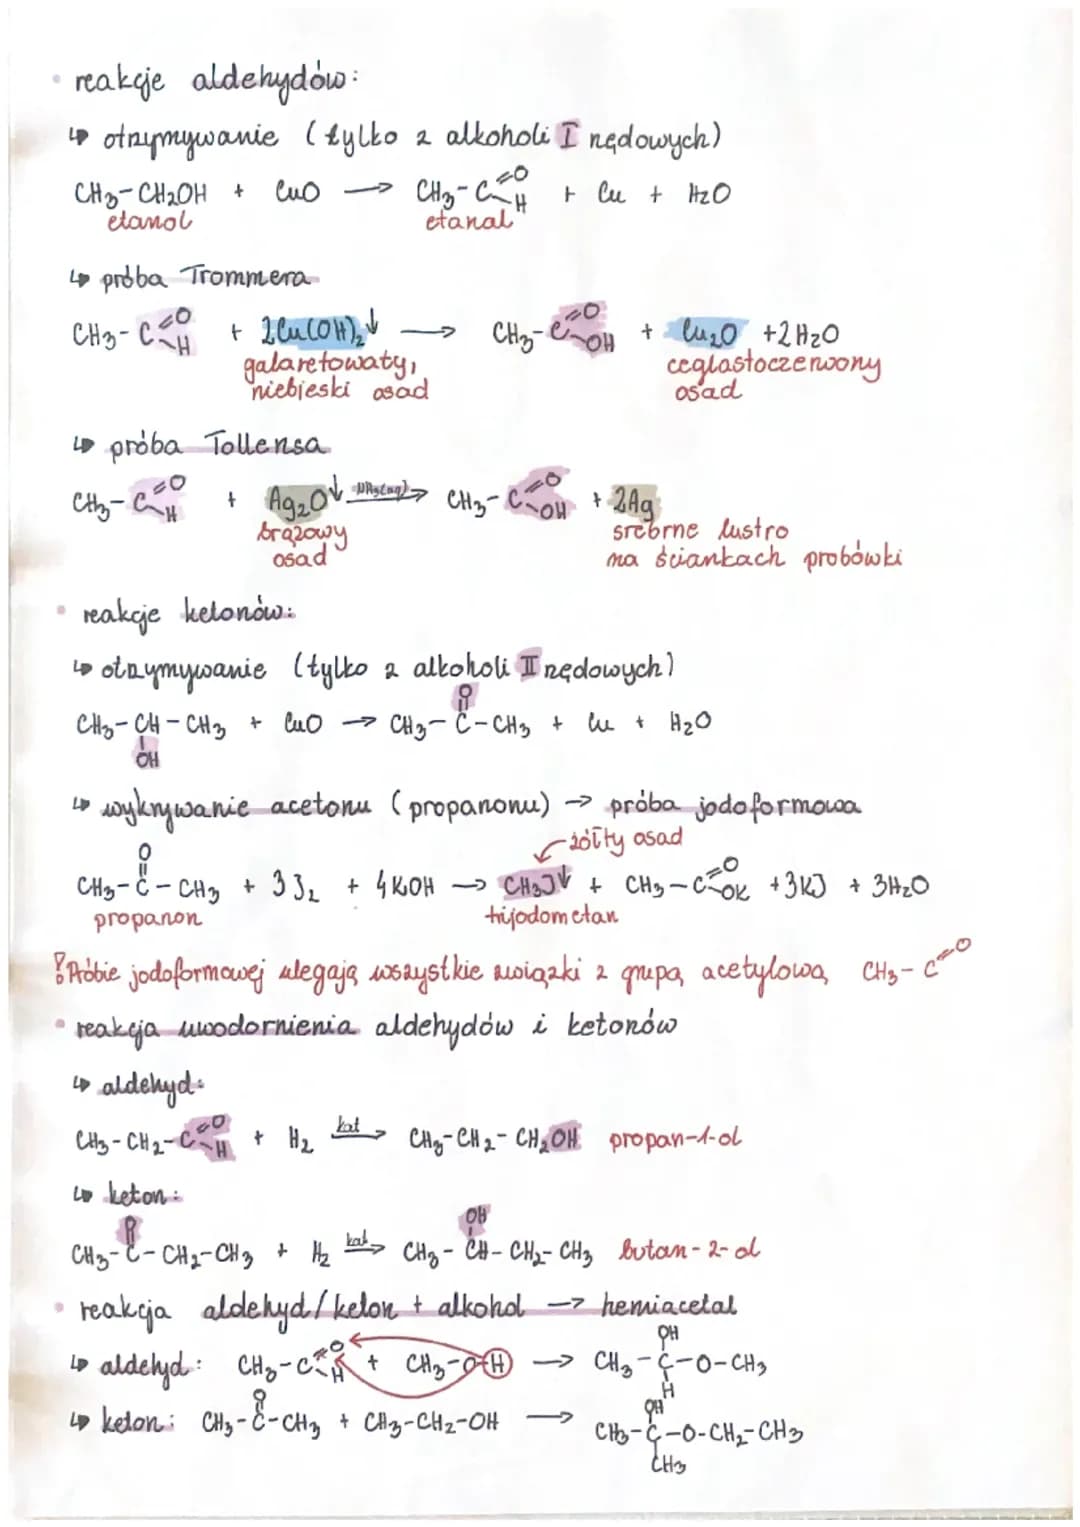 • reakcje aldehydów:
↳ otrzymywanie (tylko z alkoholi I rzędowych)
CH3-CH2OH + CuO → CH3-C=O-H + Cu + H2O
etanol etanal
↳ próba Trommera
CH3-C=O-H + 2Cu(OH)2↓ → CH3-C=O-OH + Cu2O + 2H2O
galaretowaty, ceglastoczerwony
niebieski osad osad
↳ próba Tollensa
CH3-C=O-H + Ag2O↓ NH3(aq)→ CH3-C=O-OH + 2Ag
brązowy srebrne lustro
osad na ściankach probówki
• reakcje ketonów:
↳ otrzymywanie (tylko z alkoholi II rzędowych)
O
CH3-CH-CH3 + CuO → CH3-C-CH3 + Cu + H2O
OH
↳ wykrywanie acetonu (propanonu) → próba jodoformowa
żółty osad
O
CH3-C-CH3 + 3J2 + 4KOH → CH3J↓ + CH3-C=O-OK + 3KJ + 3H2O
propanon trijodometan
! Próbie jodoformowej ulegają wszystkie związki z grupą acetylową CH3-C=O
• reakcja uwodornienia aldehydów i ketonów
↳ aldehyd:
CH3-CH2-C=O-H + H2 kat→ CH3-CH2-CH2OH propan-1-ol
↳ keton:
O OH
CH3-C-CH2-CH3 + H2 kat→ CH3-CH-CH2-CH3 butan-2-ol
• reakcja aldehyd/keton + alkohol → hemiacetal
OH
↳ aldehyd: CH3-C=O-H + CH3-O-H → CH3-C-O-CH3
H
O OH
↳ keton: CH3-C-CH3 + CH3-CH2-OH → CH3-C-O-CH2-CH3
CH3